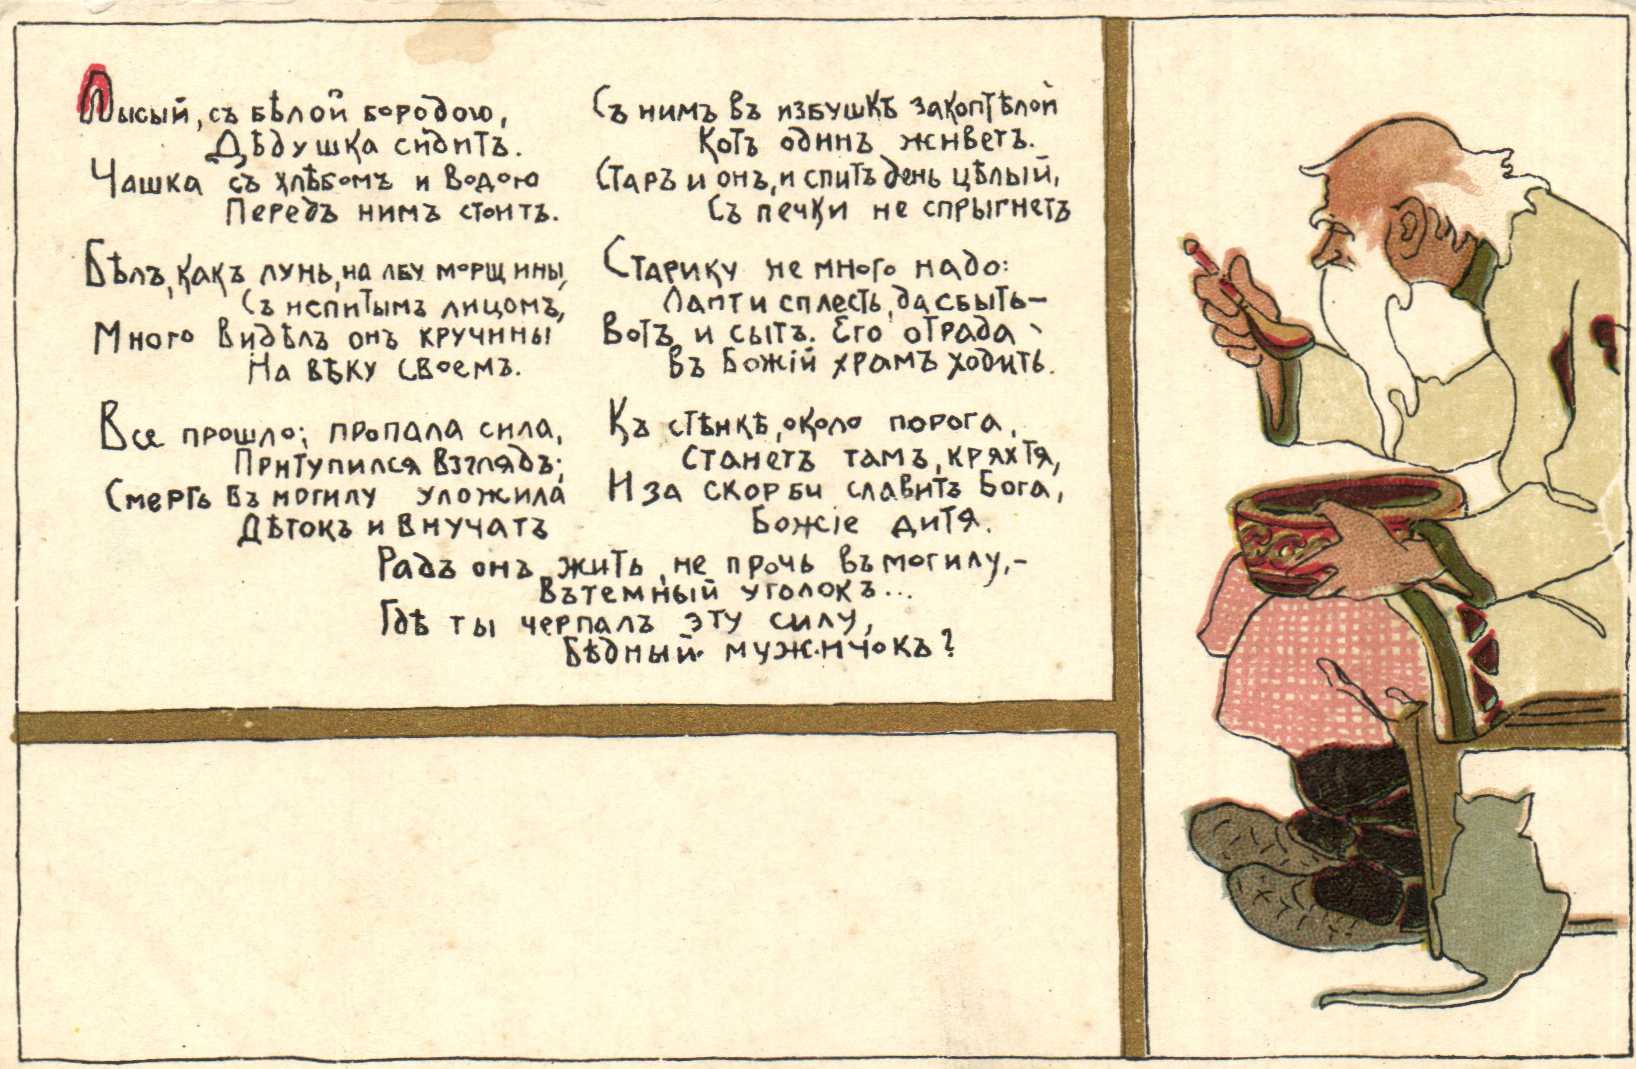 Лысый, съ бѣлой бородою,
Дѣдушка сидитъ.
Чашка съ хлѣбомъ и водою
Передъ нимъ стоитъ.
Бѣлъ, какъ лунь, на лбу морщины,
Съ испитымъ лицомъ,
Много видѣлъ онъ кручины
На вѣку своемъ.
Все прошло; пропала сила,
Притупился взглядъ;
Смерть въ могилу уложила
Дѣтокъ и внучатъ
Съ нимъ въ избушкѣ закоптѣлой
Котъ одинъ живетъ.
Старъ и онъ, и спитъ день цѣлый,
Съ печки не спрыгнетъ
Старику не много надо:
Лапти сплесть, да сбыть—
Вотъ и сытъ. Его отрада
въ Божій храмъ ходить.
Къ стѣнкѣ, около порога,
Станетъ тамъ, кряхтя,
И за скорби славитъ Бога,
Божіе дитя.
Радъ онъ жить, не прочь въ могилу,—
Въ темный уголокъ...
Гдѣ ты черпалъ эту силу,
Бѣдный мужичокъ?